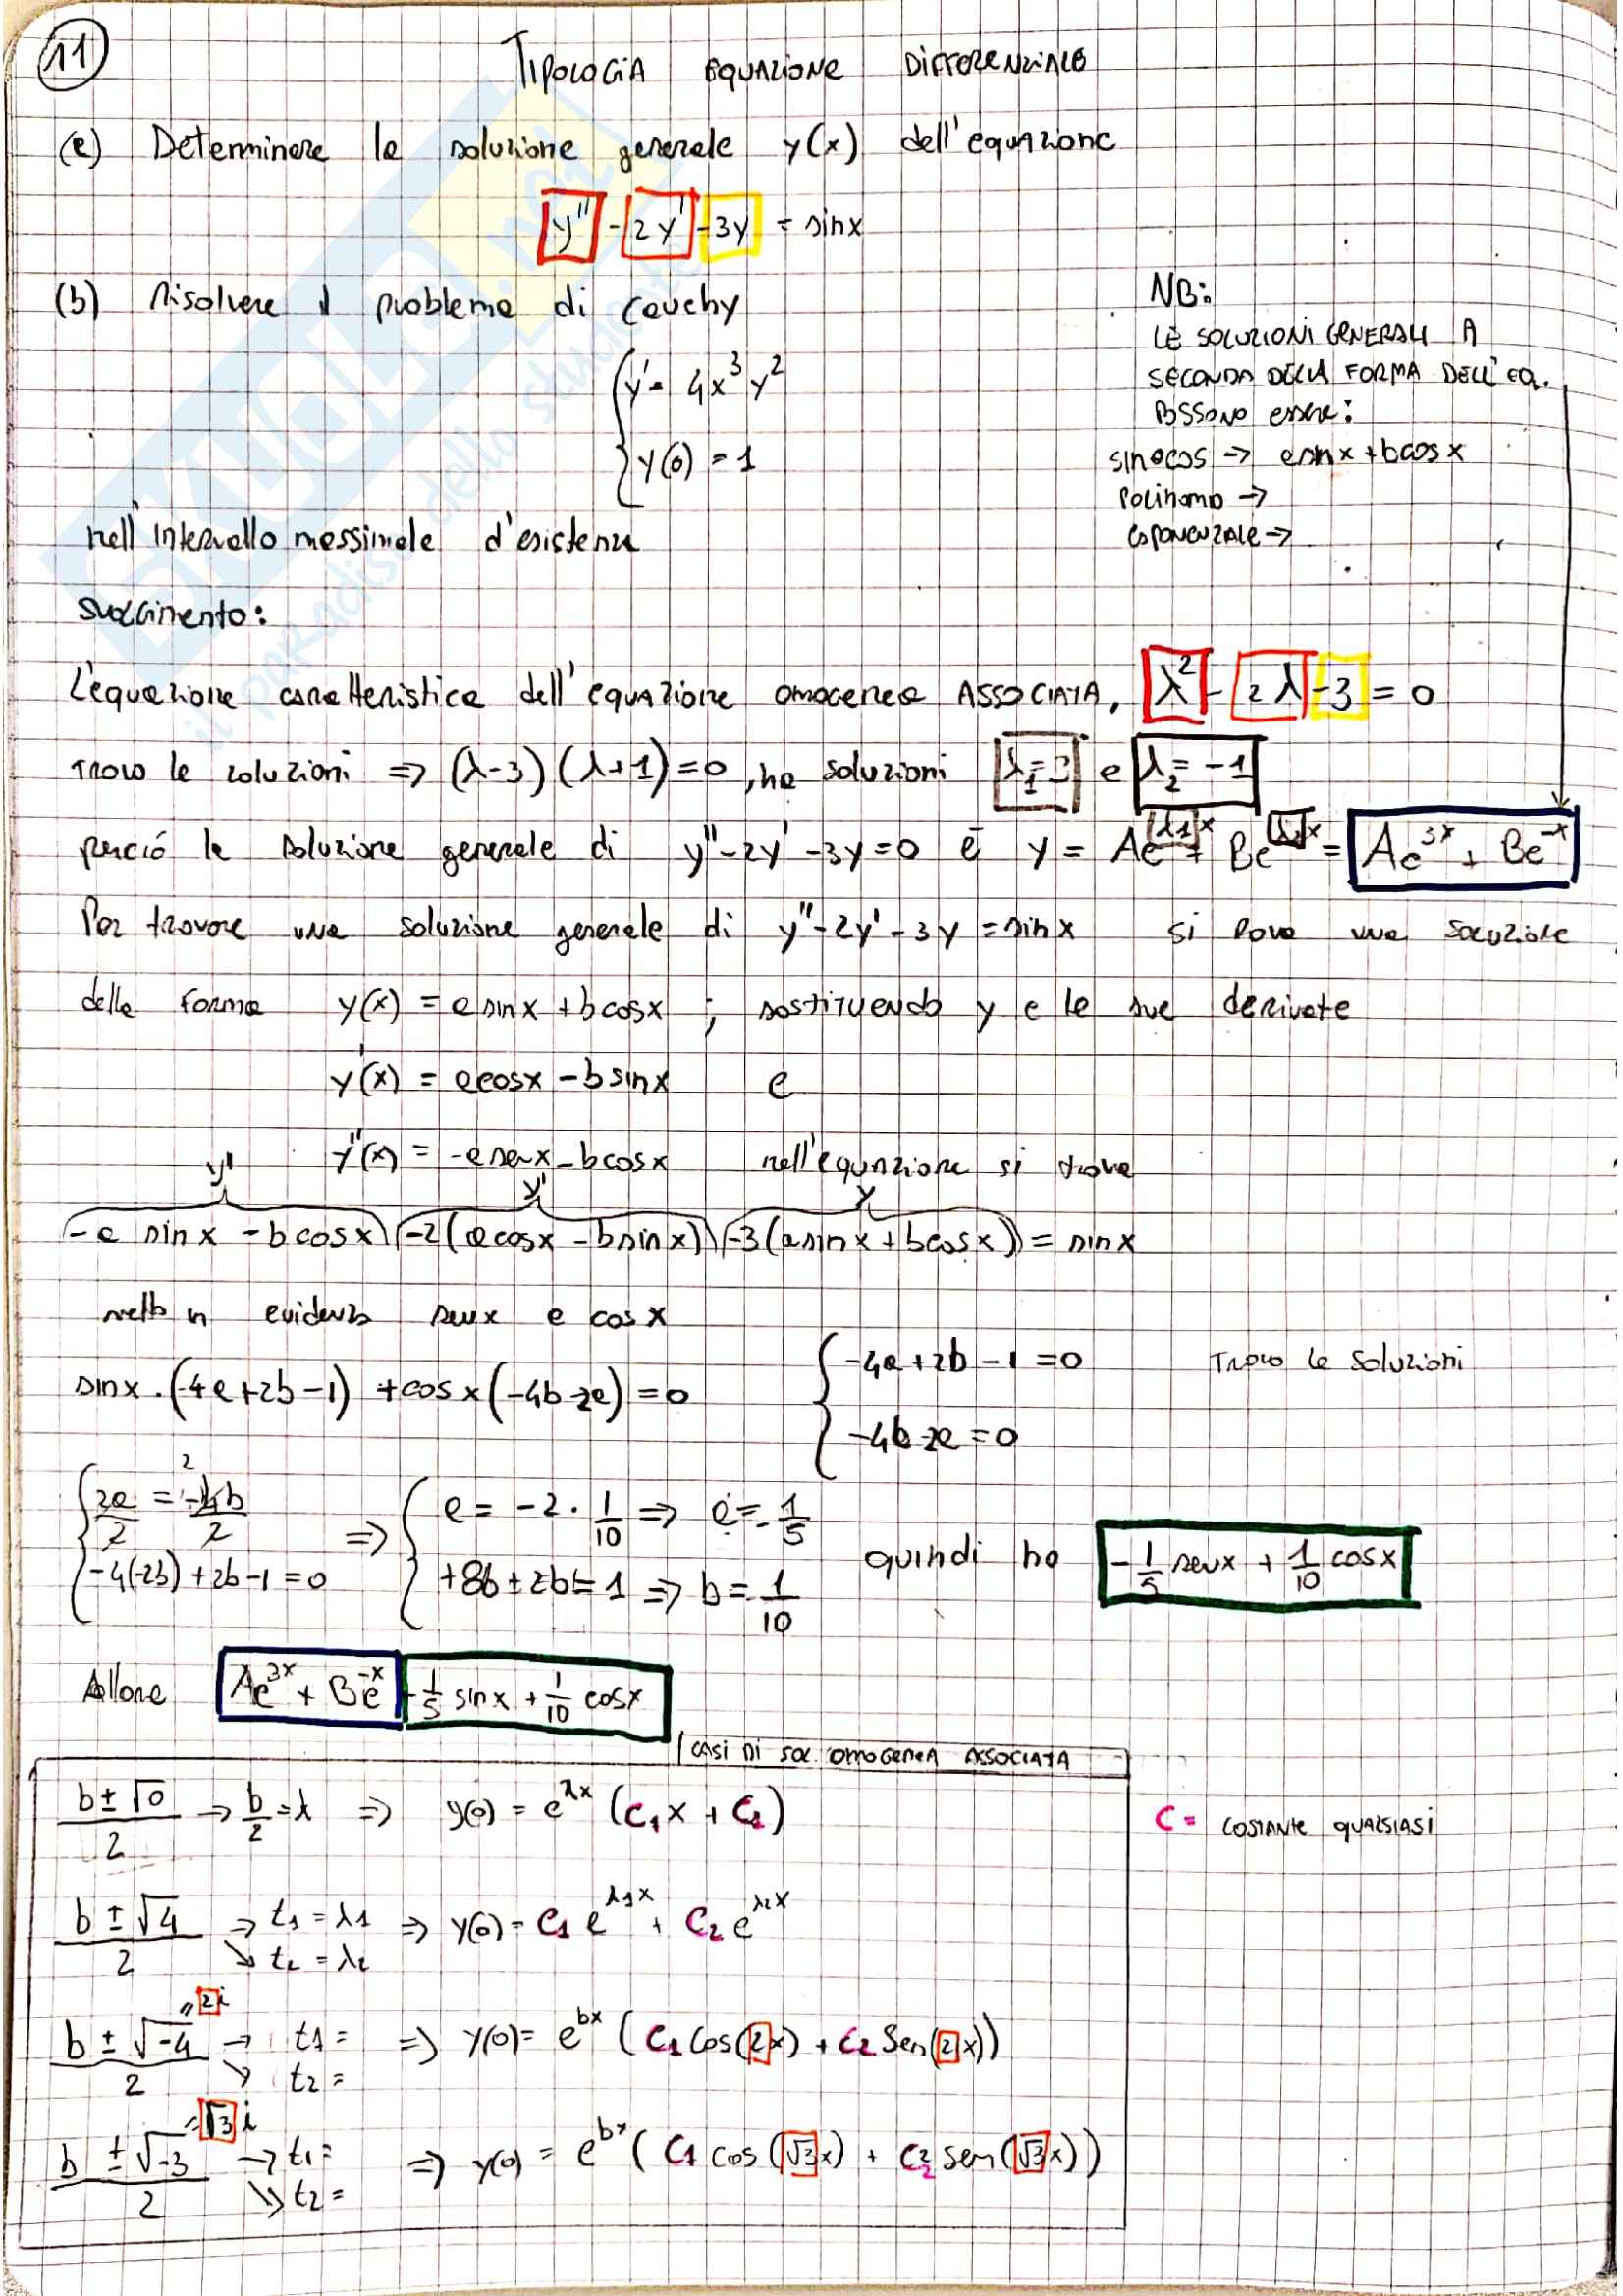 11
TIPOLOGIA EQUAZIONE DIFFERENZIALE
(a) Determinare la soluzione generale y(x) dell'equazione
y'' - 2y' - 3y = sinx
(b) Risolvere il problema di Cauchy
y' = 4x³y²
y(0) = 1
nell'intervallo massimale d'esistenza
NB:
LE SOLUZIONI GENERALI A
SECONDA DELLA FORMA DELL'EQ.
POSSONO essere:
sin o cos → asinx + bcosx
POLINOMIO →
ESPONENZIALE →
SVOLGIMENTO:
L'equazione caratteristica dell'equazione omogenea ASSOCIATA, λ² - 2λ - 3 = 0
TROVO le soluzioni ⇒ (λ-3)(λ+1)=0, ha soluzioni λ₁=3 e λ₂=-1
perciò la soluzione generale di y''-2y'-3y=0 è y = Ae^{λ1x} + Be^{λ2x} = Ae^{3x} + Be^{-x}
Per trovare una soluzione generale di y''-2y'-3y = sinx si prova una soluzione
della forma y(x) = asinx + bcosx ; sostituendo y e le sue derivate
y'(x) = acosx - bsinx e
y''(x) = -asenx - bcosx nell'equazione si trova
y'' y' y
-a sinx - bcosx -2(acosx - bsinx) -3(asinx + bcosx) = sinx
metto in evidenza senx e cosx
sinx·(-4a+2b-1) + cosx(-4b-2a) = 0
-4a+2b-1=0
-4b-2a=0
TROVO le soluzioni
2a/2 = -4b/2 2
-4(-2b)+2b-1=0
⇒ a = -2·1/10 ⇒ a = -1/5
+8b+2b=1 ⇒ b = 1/10
quindi ho -1/5 senx + 1/10 cosx
Allora Ae^{3x} + Be^{-x} -1/5 sinx + 1/10 cosx
CASI DI SOL. OMOGENEA ASSOCIATA
b±√0/2 → b/2 = λ ⇒ y(0) = e^{λx} (C₁x + C₂)
C = COSTANTE QUALSIASI
b±√4/2 → t₁=λ1 ↘ t₂=λ2 ⇒ y(0) = C₁e^{λ1x} + C₂e^{λ2x}
b±√-4/2 = 2i → t1= ↘ t2= ⇒ y(0) = e^{bx} (C₁Cos(2x) + C₂Sen(2x))
b±√-3/2 = √3i → t1= ↘ t2= ⇒ y(0) = e^{bx} (C₁cos(√3x) + C₂sen(√3x))
SKUOLA.net
il paradiso dello studente